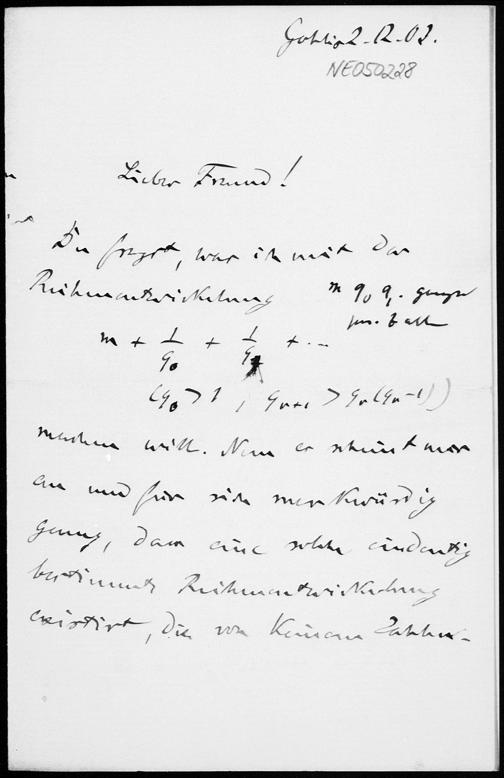 Gohlis 2.12.02.
NE050228
Lieber Freund!
Du fragst, was ich mit der
Reihenentwickelung
m q₀ q₁.. ganze
pos. Zahlen
m + 1/q₀ + 1/q₁ + ...
(q₀ > 1, qₙ₊₁ > qₙ(qₙ-1))
machen will. Nun es scheint mir
an und für sich merkwürdig
genug, dass eine solche eindeutig
bestimmte Reihenentwickelung
existirt, die von keinem Zahlen-